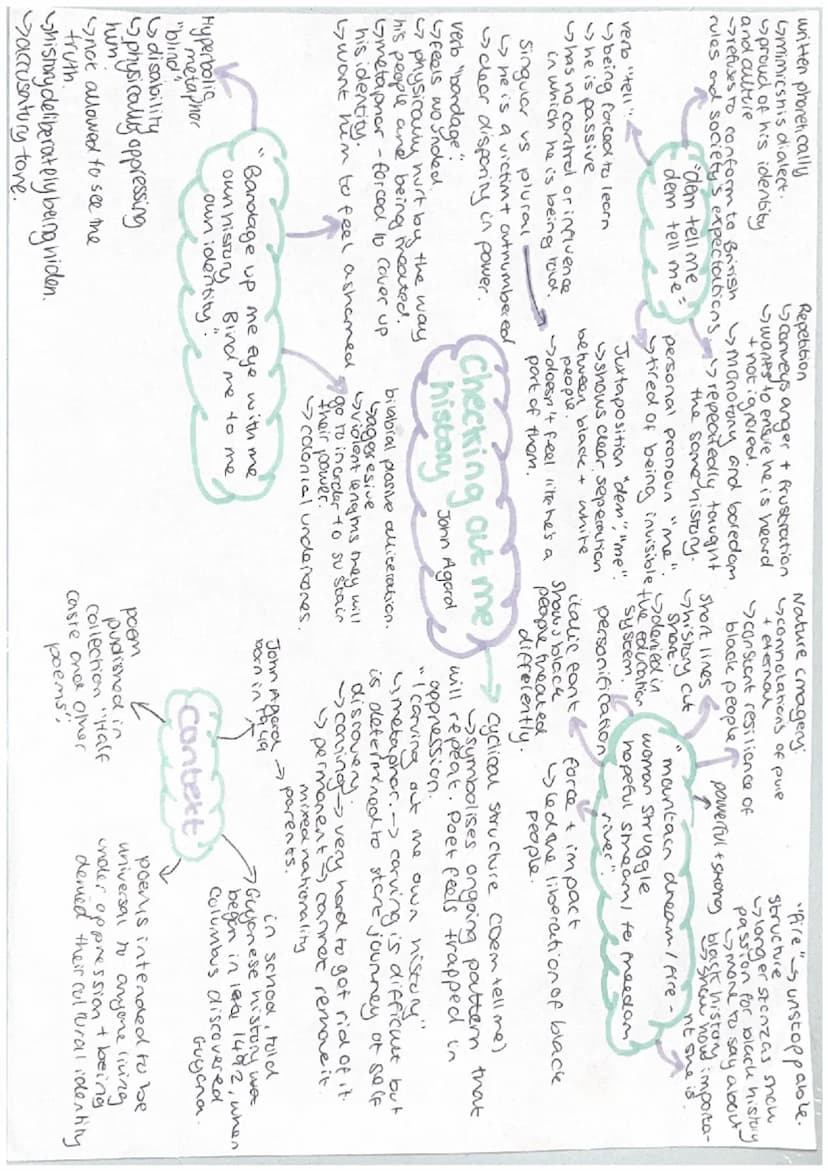 written phonetically
↳mimics his dialect.
↳proud of his identity
and culture
→refuses to conform to British
rules and society's expectations
"dem tell me
dem tell me"
verb "tell":
↳being forced to learn
↳he is passive
↳has no control or influence
in which he is being told.
Singular vs plural
↳he is a victim + outnumbered
↳clear disparity in power.
Repetition
↳conveys anger + frustration
↳wants to ensure he is heard
+ not ignored.
↳monotony and boredom
↳repeatedly taught
the same history.
personal pronoun "me".
↳tired of being invisible
Juxtaposition "dem", "me".
↳shows clear seperation
between black + white
people.
→doesn't feel like he's a
part of them.
Nature imagery:
↳connotations of pure
+ eternal
↳constant resilience of
black people
short lines
↳history cut
short.
↳denied in
the education
system.
personification
italic font
shows black
people treated
differently.
"mountain dream / fire-
woman struggle
hopeful stream / to freedom
river"
powerful + strong
force + impact
↳led the liberation of black
people.
"Fire" → unstoppable.
structure
↳longer stenzas show
passion for black history
↳more to say about
black history
→show how importa-
nt she is.
Checking out me
history John Agard
cyclical structure (dem tell me)
↳symbolises ongoing pattern that
will repeat. Poet feels trapped in
oppression.
"I carving out me own history"
↳metaphor. → carving is difficult but
is determined to start journey of self
discovery.
→carving → very hard to get rid of it.
↳permanent → cannot remove it.
verb "bandage":
↳feels wounded.
↳physically hurt by the way
his people are being treated.
↳metaphor - forced to cover up
his identity.
↳want him to feel ashamed
"Bandage up me eye with me
own history Bind me to me
own identity"
bilabial plosive alliteration.
↳aggresive
↳violent lengths they will
go to in order to sustain
their power.
↳colonial undertones.
Hyperbolic
metaphor
"blind"
↳disability
↳physically oppressing
him.
↳not allowed to see the
truth.
↳history deliberately being hiden.
↳accusatory tone.
Context
John Agard → mixed nationality
born in 1949 parents.
in school, told
Guyanese history was
began in 1492, when
columbus discovered
Guyana.
poem
published in
collection "Half
caste and other
poems".
poem is intended to be
universal to anyone living
under oppression + being
denied their cultural identity